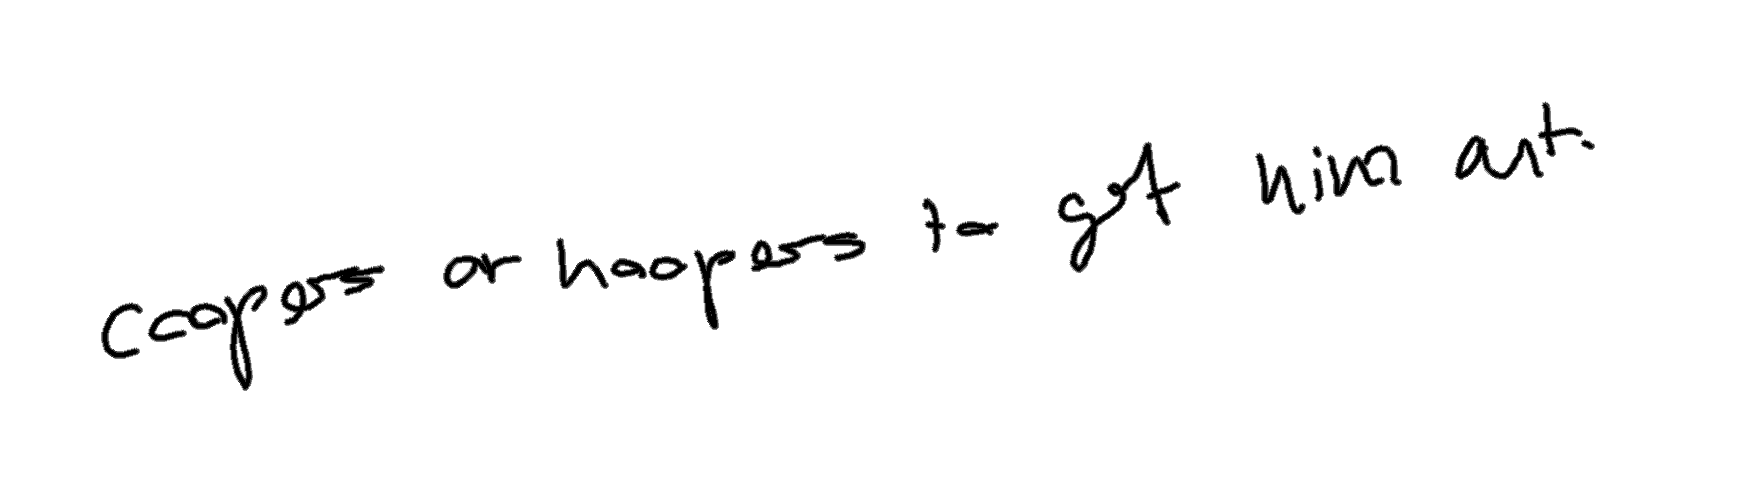 coopers or hoopers to get him out.